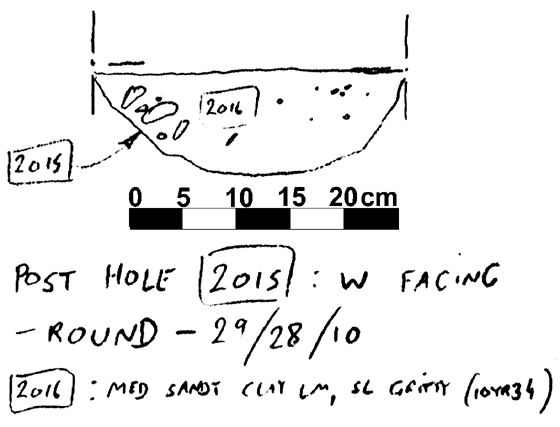 2016
2015
0 5 10 15 20 cm
POST HOLE 2015 : W FACING
- ROUND - 29/28/10
2016 : MED SANDY CLAY LM, SL GRITTY (10YR34)